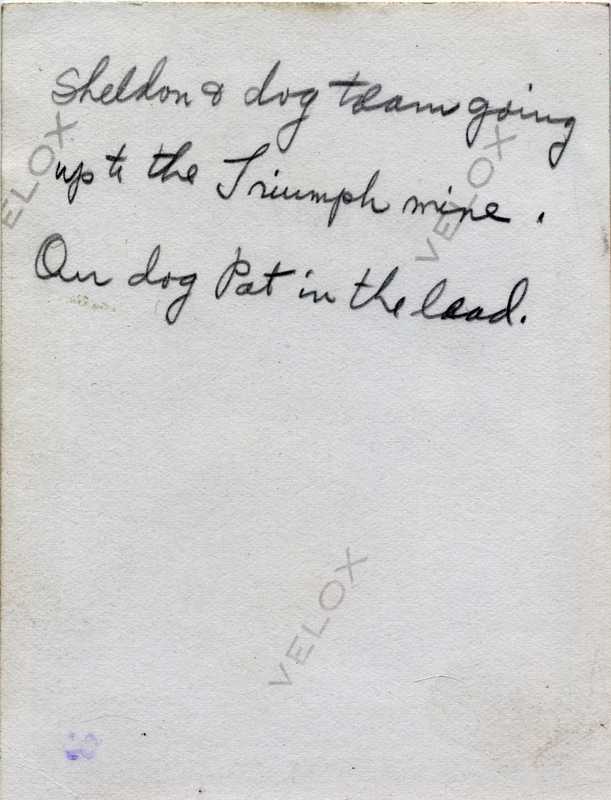 Sheldon & dog team going
up to the Triumph mine.
Our dog Pat in the lead.
VELOX
VELOX
VELOX